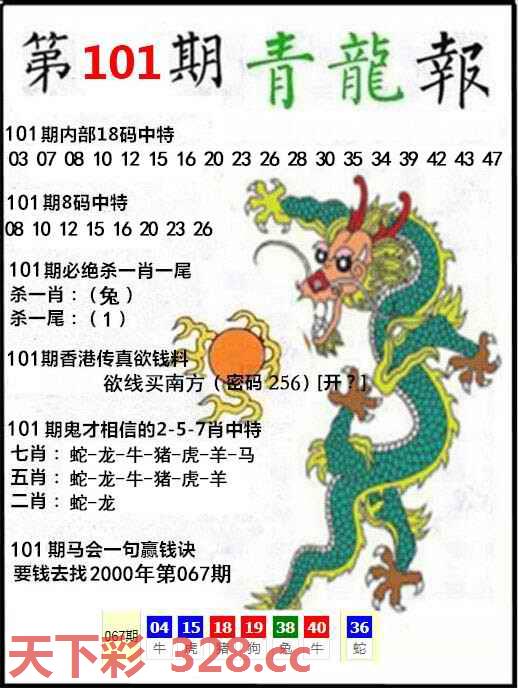 第101期青龍報
101期内部18码中特
03 07 08 10 12 15 16 20 23 26 28 30 35 34 39 42 43 47
101期8码中特
08 10 12 15 16 20 23 26
101期必绝杀一肖一尾
杀一肖：（兔）
杀一尾：（1）
101期香港传真欲钱料
欲线买南方（密码256）[开？]
101期鬼才相信的2-5-7肖中特
七肖：蛇-龙-牛-猪-虎-羊-马
五肖：蛇-龙-牛-猪-虎-羊
二肖：蛇-龙
101期马会一句赢钱诀
要钱去找2000年第067期
067期 04 15 18 19 38 40 36
牛 虎 猪 狗 兔 牛 蛇
天下彩 328.cc